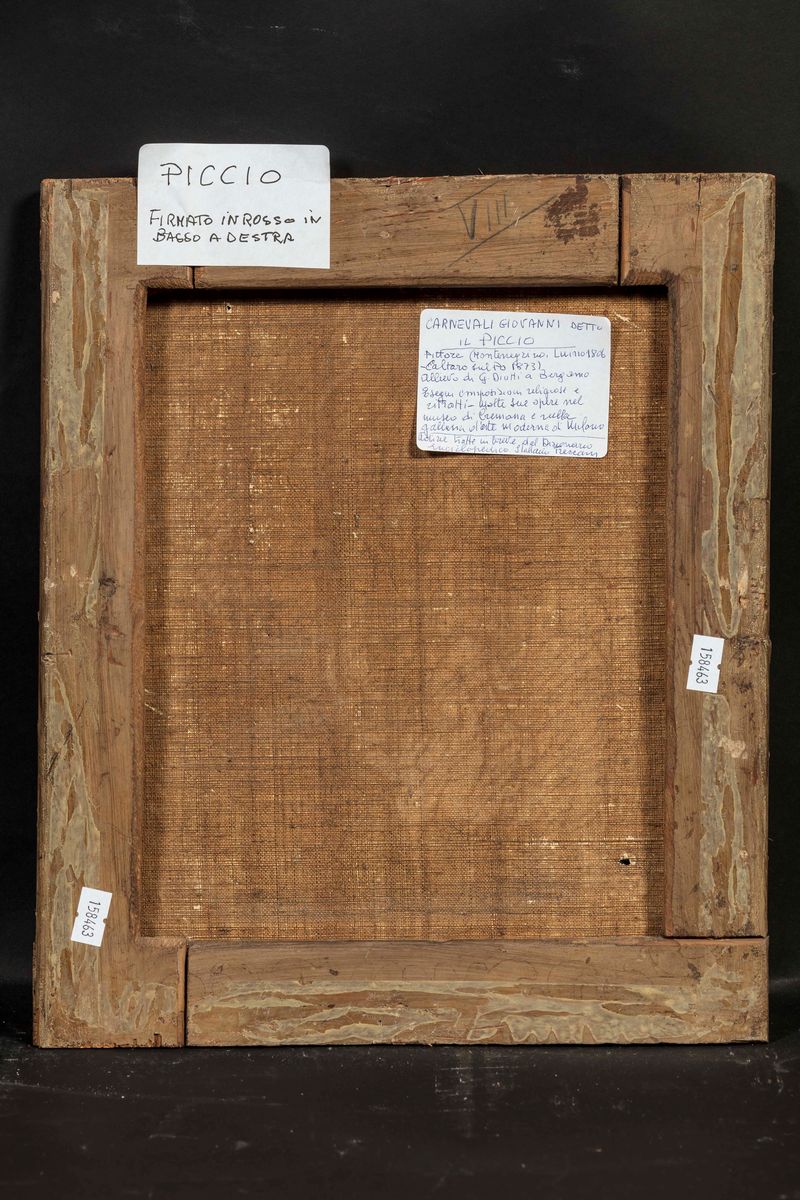 PICCIO
FIRMATO IN ROSSO IN
BASSO A DESTRA
VIII
CARNEVALI GIOVANNI DETTO
IL PICCIO
Pittore (Montenegrino, Luino 1806
-Coltaro sul Po 1873)
allievo di G. Diotti a Bergamo
Eseguì composizioni religiose e
ritratti - molte sue opere nel
museo di Cremona e nella
galleria d'arte moderna di Milano
tratte in breve dal Dizionario
Enciclopedico Italiano Treccani
158463
158463